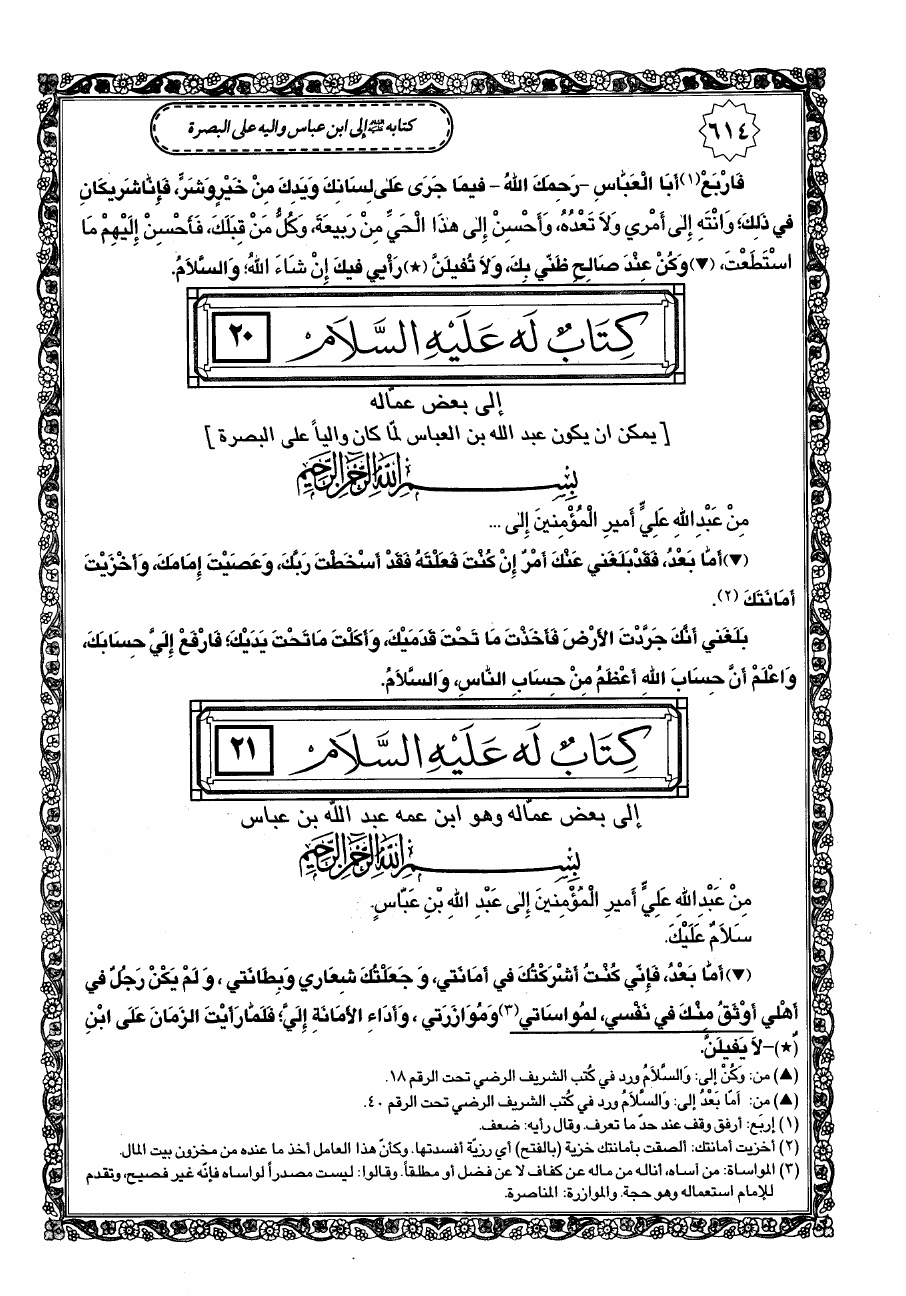 ٦١٤
كتابه ﷺ إلى ابن عباس واليه على البصرة
فَارْبَعْ (١) أَبَا الْعَبَّاسِ -رَحِمَكَ اللهُ- فيمَا جَرَى عَلى لِسَانِكَ وَيَدِكَ مِنْ خَيْرٍ وَشَرٍّ، فَإِنَّا شَريكَانِ
في ذلِكَ؛ وَانْتَهِ إِلى أَمْري وَلاَ تَعْدُهُ، وَأَحْسِنْ إِلى هذَا الْحَيِّ مِنْ رَبيعَةَ، وَكُلُّ مَنْ قِبَلَكَ، فَأَحْسِنْ إِلَيْهِمْ مَا
اسْتَطَعْتَ، (▼) وَكُنْ عِنْدَ صَالِحِ ظَنّي بِكَ، وَلاَ تُفيلَنَّ (★) رَأْيي فيكَ إِنْ شَاءَ اللهُ؛ وَالسَّلاَمُ.
كِتَابٌ لَه عَلَيْهِ السَّلاَم ٢٠
إلى بعض عمّاله
[ يمكن ان يكون عبد الله بن العباس لمّا كان والياً على البصرة ]
بِسْمِ اللهِ الرَّحْمنِ الرَّحيمِ
مِنْ عَبْدِ اللهِ عَلِيٍّ أَميرِ الْمُؤْمِنينَ إِلى ...
(▼) أَمَّا بَعْدُ، فَقَدْ بَلَغَني عَنْكَ أَمْرٌ إِنْ كُنْتَ فَعَلْتَهُ فَقَدْ أَسْخَطْتَ رَبَّكَ، وَعَصَيْتَ إِمَامَكَ، وَأَخْزَيْتَ
أَمَانَتَكَ (٢).
بَلَغَني أَنَّكَ جَرَّدْتَ الأَرْضَ فَأَخَذْتَ مَا تَحْتَ قَدَمَيْكَ، وَأَكَلْتَ مَا تَحْتَ يَدَيْكَ؛ فَارْفَعْ إِلَيَّ حِسَابَكَ،
وَاعْلَمْ أَنَّ حِسَابَ اللهِ أَعْظَمُ مِنْ حِسَابِ النَّاسِ، وَالسَّلاَمُ.
كِتَابٌ لَه عَلَيْهِ السَّلاَم ٢١
إلى بعض عمّاله وهو ابن عمه عبد اللّه بن عباس
بِسْمِ اللهِ الرَّحْمنِ الرَّحيمِ
مِنْ عَبْدِ اللهِ عَلِيٍّ أَميرِ الْمُؤْمِنينَ إِلى عَبْدِ اللهِ بْنِ عَبَّاسٍ.
سَلاَمٌ عَلَيْكَ.
(▼) أَمَّا بَعْدُ، فَإِنّي كُنْتُ أَشْرَكْتُكَ في أَمَانَتي، وَ جَعَلْتُكَ شِعَاري وَبِطَانَتي ، وَ لَمْ يَكُنْ رَجُلٌ في
أَهْلي أَوْثَقُ مِنْكَ في نَفْسي، لِمُوَاسَاتي (٣) وَمُوَازَرَتي ، وَأَدَاءِ الأَمَانَةِ إِلَيَّ؛ فَلَمَّا رَأَيْتَ الزَّمَانَ عَلَى ابْنِ
(★)-لاَ يَفيلَنَّ.
(▲) من: وَكُنْ إلى: وَالسَّلاَمُ ورد في كُتب الشريف الرضي تحت الرقم ١٨.
(▲) من: أَمَّا بَعْدُ إلى: وَالسَّلاَمُ ورد في كُتب الشريف الرضي تحت الرقم ٤٠.
(١) إربَع: أرفق وقف عند حدّ ما تعرف. وقال رأيه: ضعف.
(٢) أخزيت أمانتك: ألصقت بأمانتك خزية (بالفتح) أي رزيّة أفسدتها. وكأنّ هذا العامل أخذ ما عنده من مخزون بيت المال.
(٣) المواساة: من أساه، أناله من ماله عن كفاف لا عن فضل أو مطلقاً. وقالوا: ليست مصدراً لواساه فإنّه غير فصيح، وتقدم
للإمام استعماله وهو حجة. والموازرة: المناصرة.